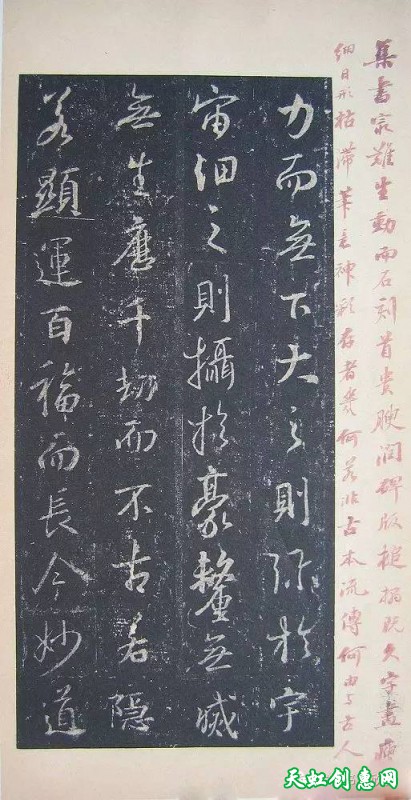 集書難生動而石刻首貴腴潤碑版槌搨既久字畫
細日形枯滯筆意神彩存者幾何若非古本流傳何由与古人
力而無下大之則弥於宇
宙細之則攝於豪釐無滅
無生歷千劫而不古若隱
若顯運百福而長今妙道
天虹创惠网